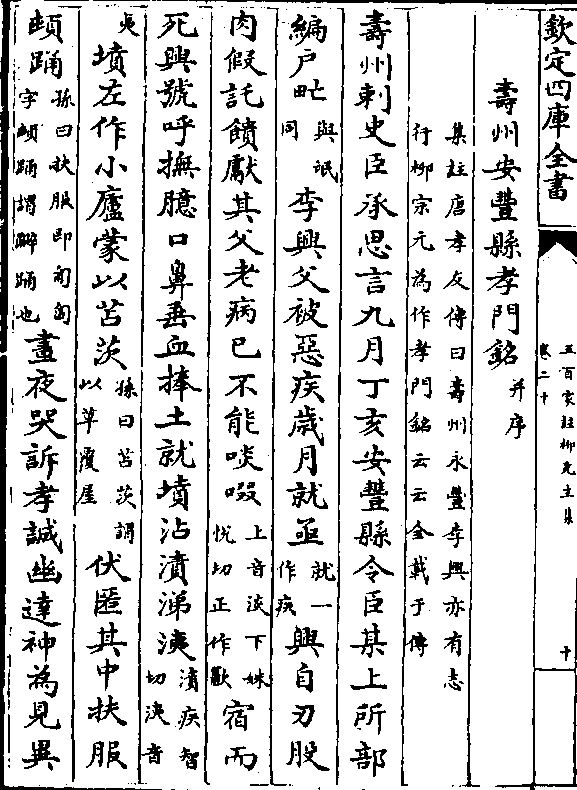 欽定四庫全書
五百家註柳先生集
卷二十
十
壽州安豐縣孝門銘并序
集註唐孝友傳曰壽州永豐李興亦有志
行柳宗元為作孝門銘云云全載于傳
壽州刺史臣承思言九月丁亥安豐縣令臣某上所部
編戶甿與氓同李興父被惡疾歲月就亟就一作疾興自刃股
肉假託饋獻其父老病已不能啖啜上音淡下姝悅切正作歠宿而
死興號呼撫臆口鼻垂血捧土就墳沾漬涕洟漬疾智切洟音
夷墳左作小廬蒙以苫茨孫曰苫茨謂以草覆屋伏匿其中扶服
頓踊孫曰扶服即匍匐字頓踊謂擗踊也晝夜哭訴孝誠幽達神為見異